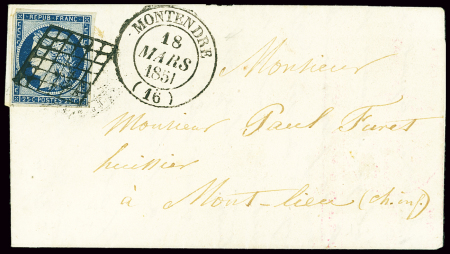 REPUB. FRANC.
25 C. POSTES 25 C.
MONTENDRE
18
MARS
1851
(16)
Monsieur
Monsieur Paul Furet
huissier
à Mont-lieu (ch. inf.)